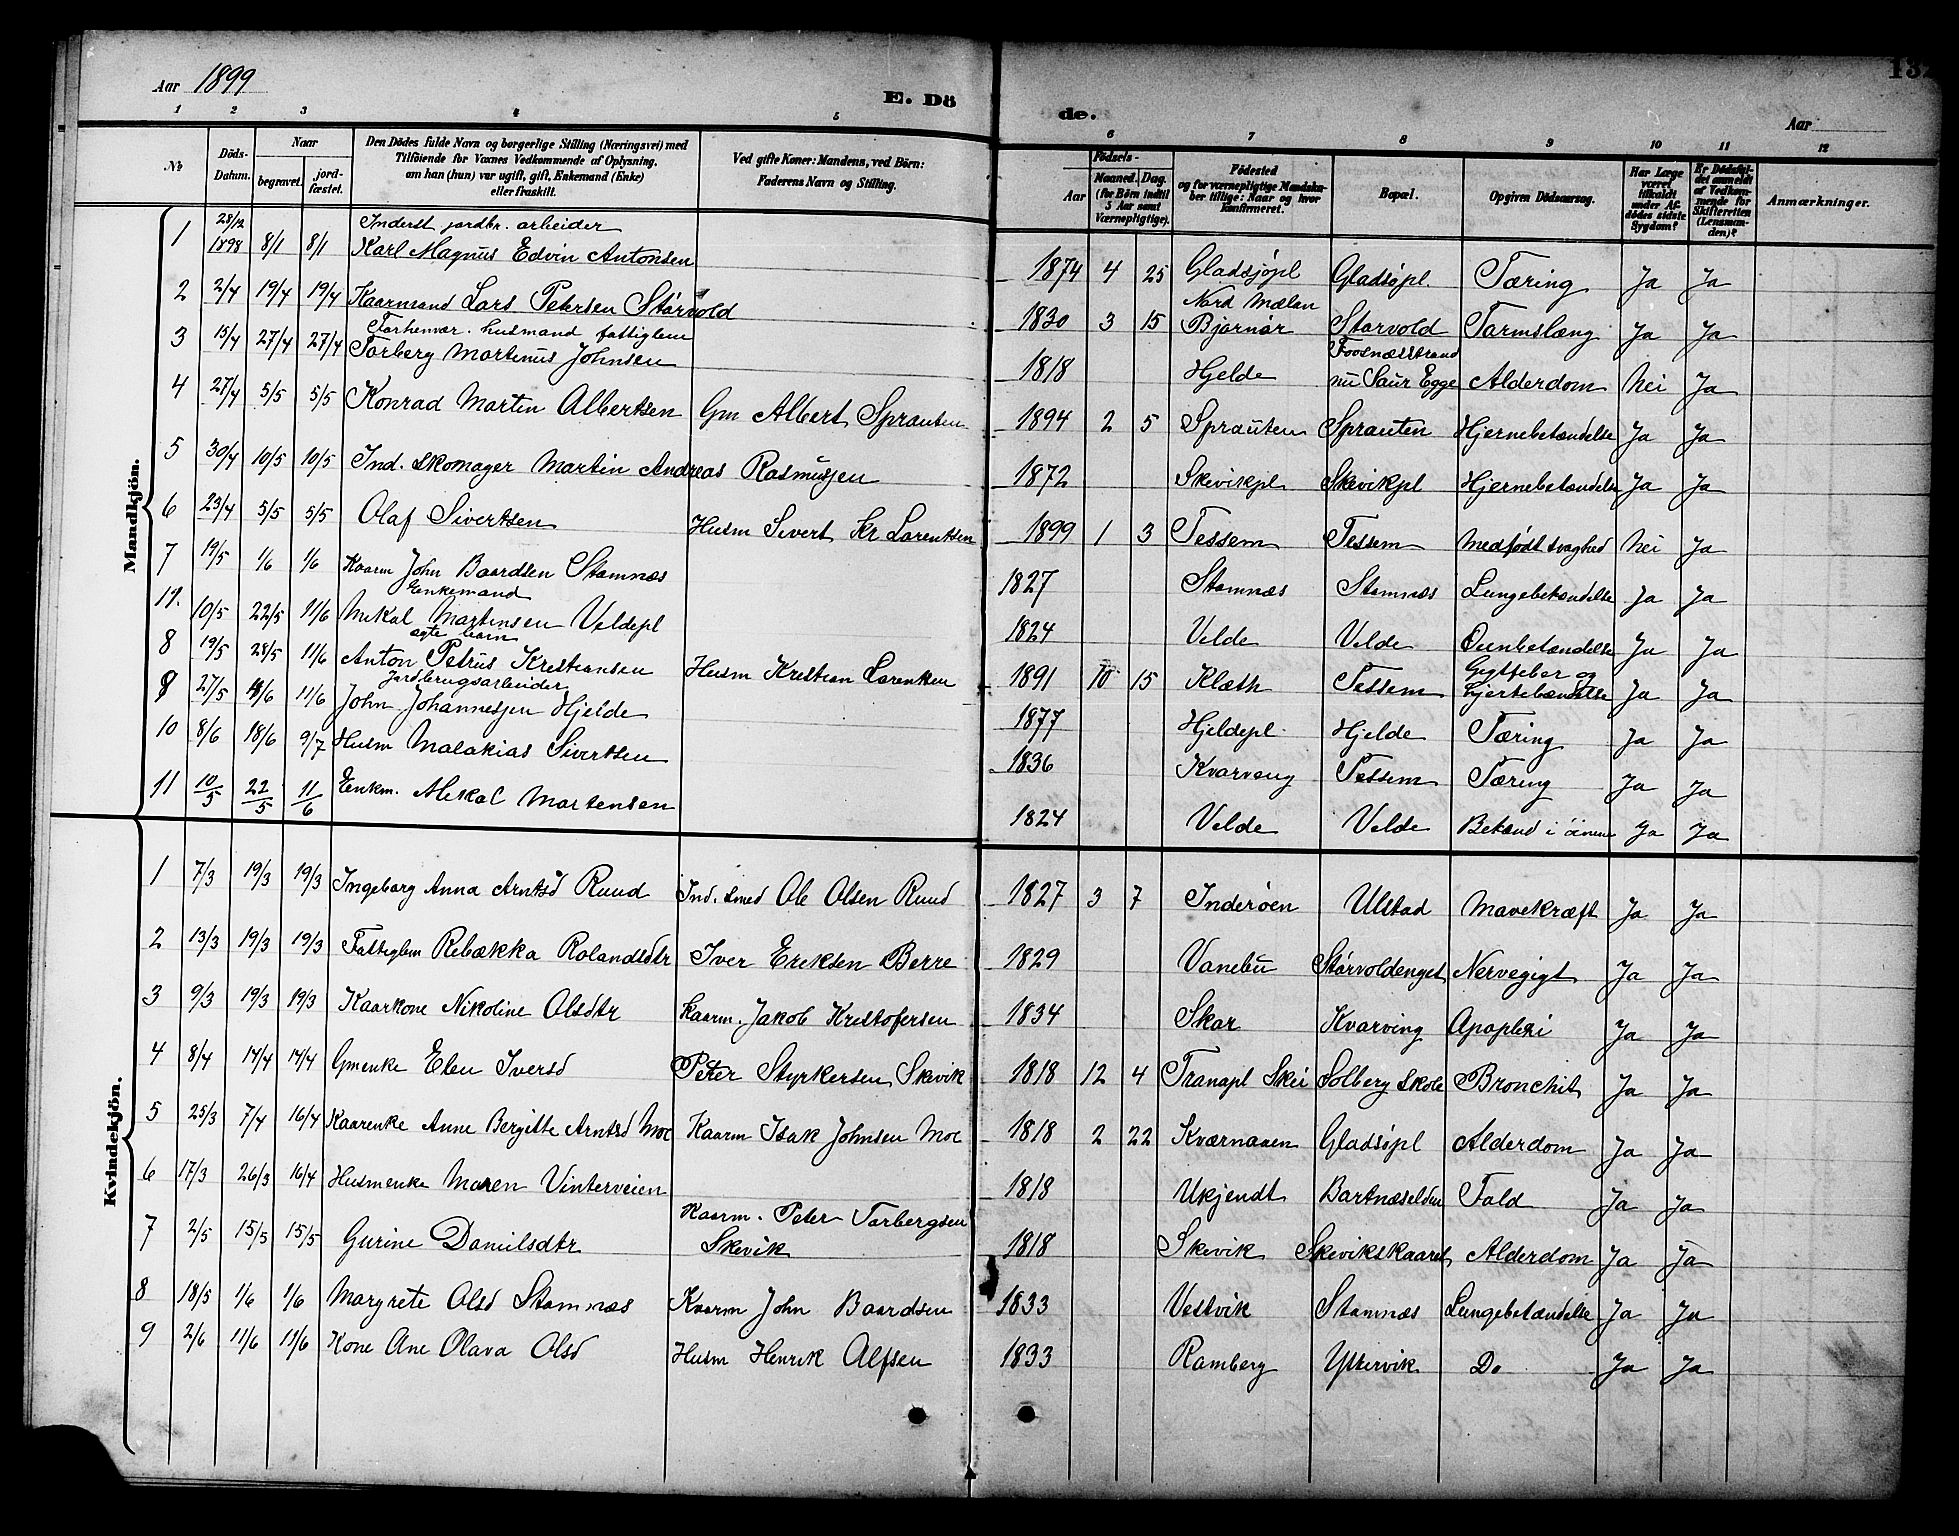 Aar 1899
E. Dö
de.
Aar
132
1 2 3 4 5 6 7 8 9 10 11 12
№ Döds-Datum. Naar begravet. jord-fæstet. Den Dödes fulde Navn og borgerlige Stilling (Næringsvei) med Tilföiende for Voxnes Vedkommende af Oplysning, om han (hun) var ugift, gift, Enkemand (Enke) eller fraskilt. Ved gifte Koner: Mandens, ved Börn: Faderens Navn og Stilling. Födsels- Aar Maaned. Dag. (for Börn indtil 5 Aar samt Værnepligtige). Födested og for værnepligtige Mandskaber tillige: Naar og hvor konfirmeret. Bopæl. Opgiven Dödsaarsag. Har Læge været tilkaldt under Afdödes sidste Sygdom? Er Dödsfaldet anmeldt af Vedkommende for Skifteretten (Lensmanden)? Anmærkninger.
Mandkjön.
1 28/12 1898 8/1 8/1 Inderst jordbr. arbeider Karl Magnus Edvin Antonsen 1874 4 25 Gladsjøpl Gladsøpl. Tæring Ja Ja
2 2/4 19/4 19/4 Kaarmand Lars Petersen Størvold 1830 3 15 Nord Mælan Bjørnør Størvold Tarmslæng Ja Ja
3 15/4 27/4 27/4 Forhenvær. husmand fattiglem Torberg Martinus Johnsen 1818 Hjelde Foosnæsstrand nu Saur Egge Alderdom Nei Ja
4 27/4 5/5 5/5 Konrad Martin Albertsen Gm Albert Sprauten 1894 2 5 Sprauten Sprauten Hjernebetændelse Ja Ja
5 30/4 10/5 10/5 Ind. skomager Martin Andreas Rasmussen 1872 Skevikpl Skevikpl Hjernebetændelse Ja Ja
6 23/4 5/5 5/5 Olaf Sivertsen Husm Sivert Kr Larentsen 1899 1 3 Tessem Tessem Medfødt svaghed Nei Ja
7 19/5 1/6 1/6 Kaarm John Baardsen Stamnæs 1827 Stamnæs Stamnæs Lungebetændelse Ja Ja
11. 10/5 22/5 11/6 Enkemand Mikal Martinsen Veldepl 1824 Velde Velde Ja Ja
8 19/5 28/5 11/6 ægte barn Anton Petrus Kristiansen Husm Kristian Larentsen 1891 10 15 Klæth Tessem Gigtfeber og hjertebetændelse Ja Ja
9 27/5 18/6 11/6 Jordbrugsarbeider John Johannessen Hjelde 1877 Hjeldepl. Hjelde Tæring Ja Ja
10 8/6 18/6 9/7 Husm Malakias Sivertsen 1836 Kvarveng Tessem Tæring Ja Ja
11 10/5 22/5 11/6 Enkm. Mekal Martensen 1824 Velde Velde Betænd i Ja Ja
Kvindekjön.
1 7/3 19/3 19/3 Ingeborg Anna Arntsd Ruud Ind. smed Ole Olsen Ruud 1827 3 7 Inderøen Ulstad Mavekræft Ja Ja
2 13/3 19/3 19/3 Fattiglem Rebækka Rolandsdtr Iver Eriksen Berre 1829 Vanebu Størvoldenget Nervegigt Ja Ja
3 9/3 19/3 19/3 Kaarkone Nikoline Olsdtr Kaarm. Jakob Kristofersen 1834 Skar Kvarving Apoplexi Ja Ja
4 8/4 14/4 14/4 Gmenke Elen Iversd Peter Styrkersen Skevik 1818 12 4 Tranapl Skei Solberg Skole Bronchit Ja Ja
5 25/3 7/4 16/4 Kaarenke Anne Bergitte Arntsd Moe Kaarm Isak Johnsen Moe 1818 2 22 Kværnaaen Gladsøpl Alderdom Ja Ja
6 17/3 26/3 16/4 Husmenke Maren Vinterveien 1818 Ukjendt Bartnæselden Fald Ja Ja
7 2/5 15/5 15/5 Gurine Danielsdtr Kaarm. Peter Torbergsen Skevik 1818 Skevik Skevikskaaret Alderdom Ja Ja
8 18/5 1/6 1/6 Margrete Olsd Stamnæs Kaarm John Baardsen 1833 Vestvik Stamnæs Lungebetændelse Ja Ja
9 2/6 11/6 11/6 Kone Ane Olava Olsd Husm Henrik Alfsen 1833 Ramberg Yttervik Do Ja Ja